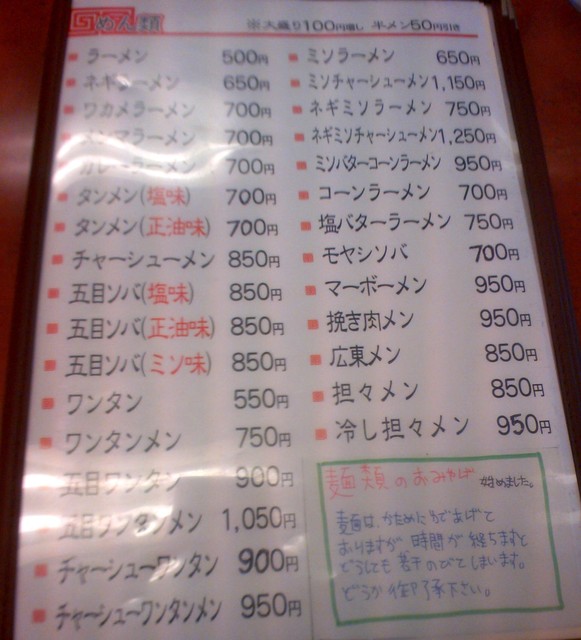 めん類
※大盛り100円増し 半メン50円引き
ラーメン 500円
ネギラーメン 650円
ワカメラーメン 700円
メンマラーメン 700円
カレーラーメン 700円
タンメン(塩味) 700円
タンメン(正油味) 700円
チャーシューメン 850円
五目ソバ(塩味) 850円
五目ソバ(正油味) 850円
五目ソバ(ミソ味) 850円
ワンタン 550円
ワンタンメン 750円
五目ワンタン 900円
五目ワンタンメン 1,050円
チャーシューワンタン 900円
チャーシューワンタンメン 950円
ミソラーメン 650円
ミソチャーシューメン 1,150円
ネギミソラーメン 750円
ネギミソチャーシューメン 1,250円
ミソバターコーンラーメン 950円
コーンラーメン 700円
塩バターラーメン 750円
モヤシソバ 700円
マーボーメン 950円
挽き肉メン 950円
広東メン 850円
担々メン 850円
冷し担々メン 950円
麺類のおみやげ 始めました。
麺は、かためにゆであげて
おりますが 時間が経ちますと
どうしても若干のびてしまいます。
どうか御了承下さい。